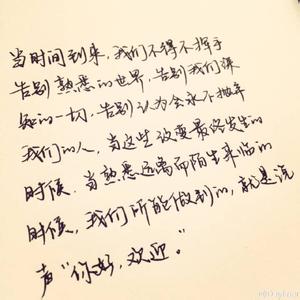 当时间到来,我们不得不挥手
告别熟悉的世界,告别我们深
知的一切,告别认为会永不抛弃
我们的人,当这些改变最终发生的
时候.当熟悉远离而陌生来临的
时候,我们所能做到的,就是说
声“你好,欢迎。”